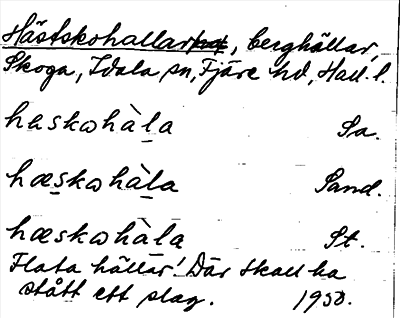 Hästskohallar, berghällar,
Skoga, Idala sn, Fjäre hd, Hall. l.
hɛskωhàla Sa.
hæskωhàla Sand.
hæskωhàla St.
Flata hällar! Där skall ha
stått ett slag. 1950.